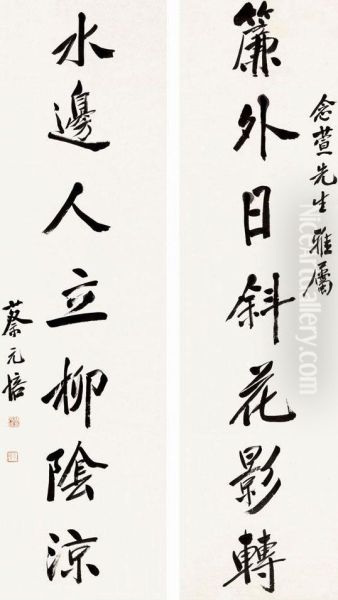 念萱先生雅屬
簾外日斜花影轉
水邊人立柳陰涼
蔡元培
NiceArtGallery.com